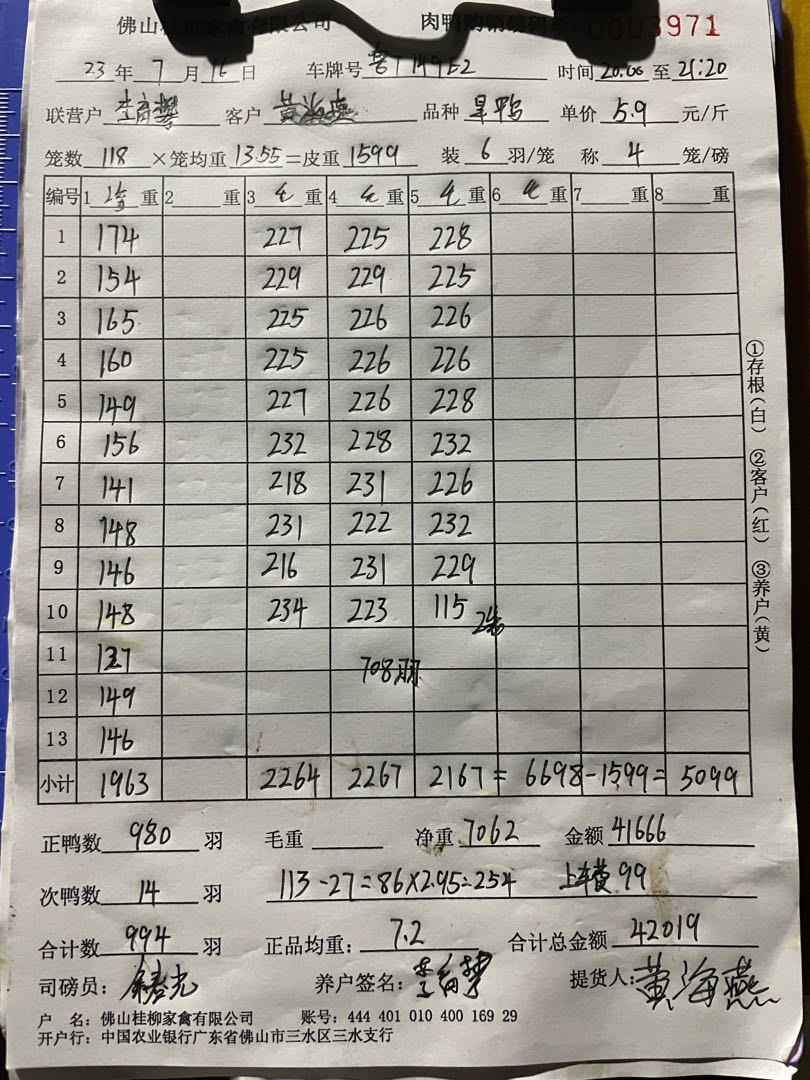 佛山桂柳家禽有限公司 肉鸭购销磅码单 0003971
23年7月16日 车牌号 14952 时间 20:00 至 21:20
联营户 客户 黄海燕 品种 旱鸭 单价 5.9 元/斤
笼数 118 ×笼均重 13.55 =皮重 1599 装 6 羽/笼 称 4 笼/磅
编号 1 重 2 重 3 毛 重 4 毛 重 5 毛 重 6 毛 重 7 重 8 重
1 174 227 225 228
2 154 229 229 225
3 165 225 226 226
4 160 225 226 226
5 149 227 226 228
6 156 232 228 232
7 141 218 231 226
8 148 231 222 232
9 146 216 231 229
10 148 234 223 115 2笼
11 137 708羽
12 149
13 146
小计 1963 2264 2267 2167 = 6698-1599= 5099
正鸭数 980 羽 毛重 净重 7062 金额 41666
次鸭数 14 羽 113-27=86×2.95=254 上车费 99
合计数 994 羽 正品均重: 7.2 合计总金额 42019
司磅员: 养户签名: 提货人: 黄海燕
户 名: 佛山桂柳家禽有限公司 账号: 444 401 010 400 169 29
开户行: 中国农业银行广东省佛山市三水区三水支行
①存根(白) ②客户(红) ③养户(黄)